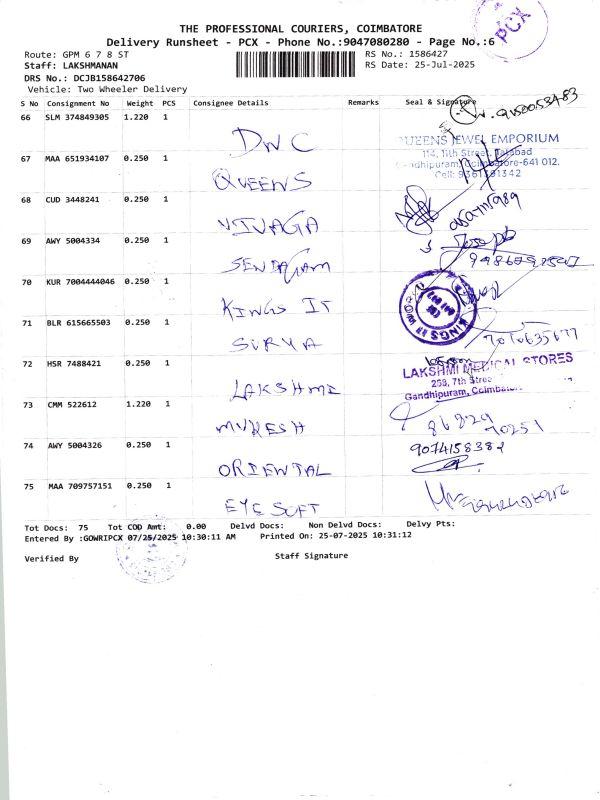 THE PROFESSIONAL COURIERS, COIMBATORE
Delivery Runsheet - PCX - Phone No.:9047080280 - Page No.:6
PCX
Route: GPM 6 7 8 ST
RS No.: 1586427
Staff: LAKSHMANAN
RS Date: 25-Jul-2025
DRS No.: DCJB158642706
Vehicle: Two Wheeler Delivery
S No Consignment No Weight PCS Consignee Details Remarks Seal & Signature
66 SLM 374849305 1.220 1
DNC
67 MAA 651934107 0.250 1
QUEENS
QUEENS JEWEL EMPORIUM
114, 11th Street, Tatabad
Gandhipuram, Coimbatore-641 012.
68 CUD 3448241 0.250 1
VINAGA
69 AWY 5004334 0.250 1
70 KUR 7004444046 0.250 1
KINGS IT
KINGS IT WORLD
71 BLR 615665503 0.250 1
SURYA
72 HSR 7488421 0.250 1
LAKSHMI
LAKSHMI MEDICAL STORES
258, 7th Stree
Gandhipuram, Coimbato
73 CMM 522612 1.220 1
MUKESH
86829
70251
74 AWY 5004326 0.250 1
ORIENTAL
9074158382
75 MAA 709757151 0.250 1
EYE SOFT
Tot Docs: 75 Tot COD Amt: 0.00 Delvd Docs: Non Delvd Docs: Delvy Pts:
Entered By :GOWRIPCX 07/25/2025 10:30:11 AM Printed On: 25-07-2025 10:31:12
Verified By Staff Signature